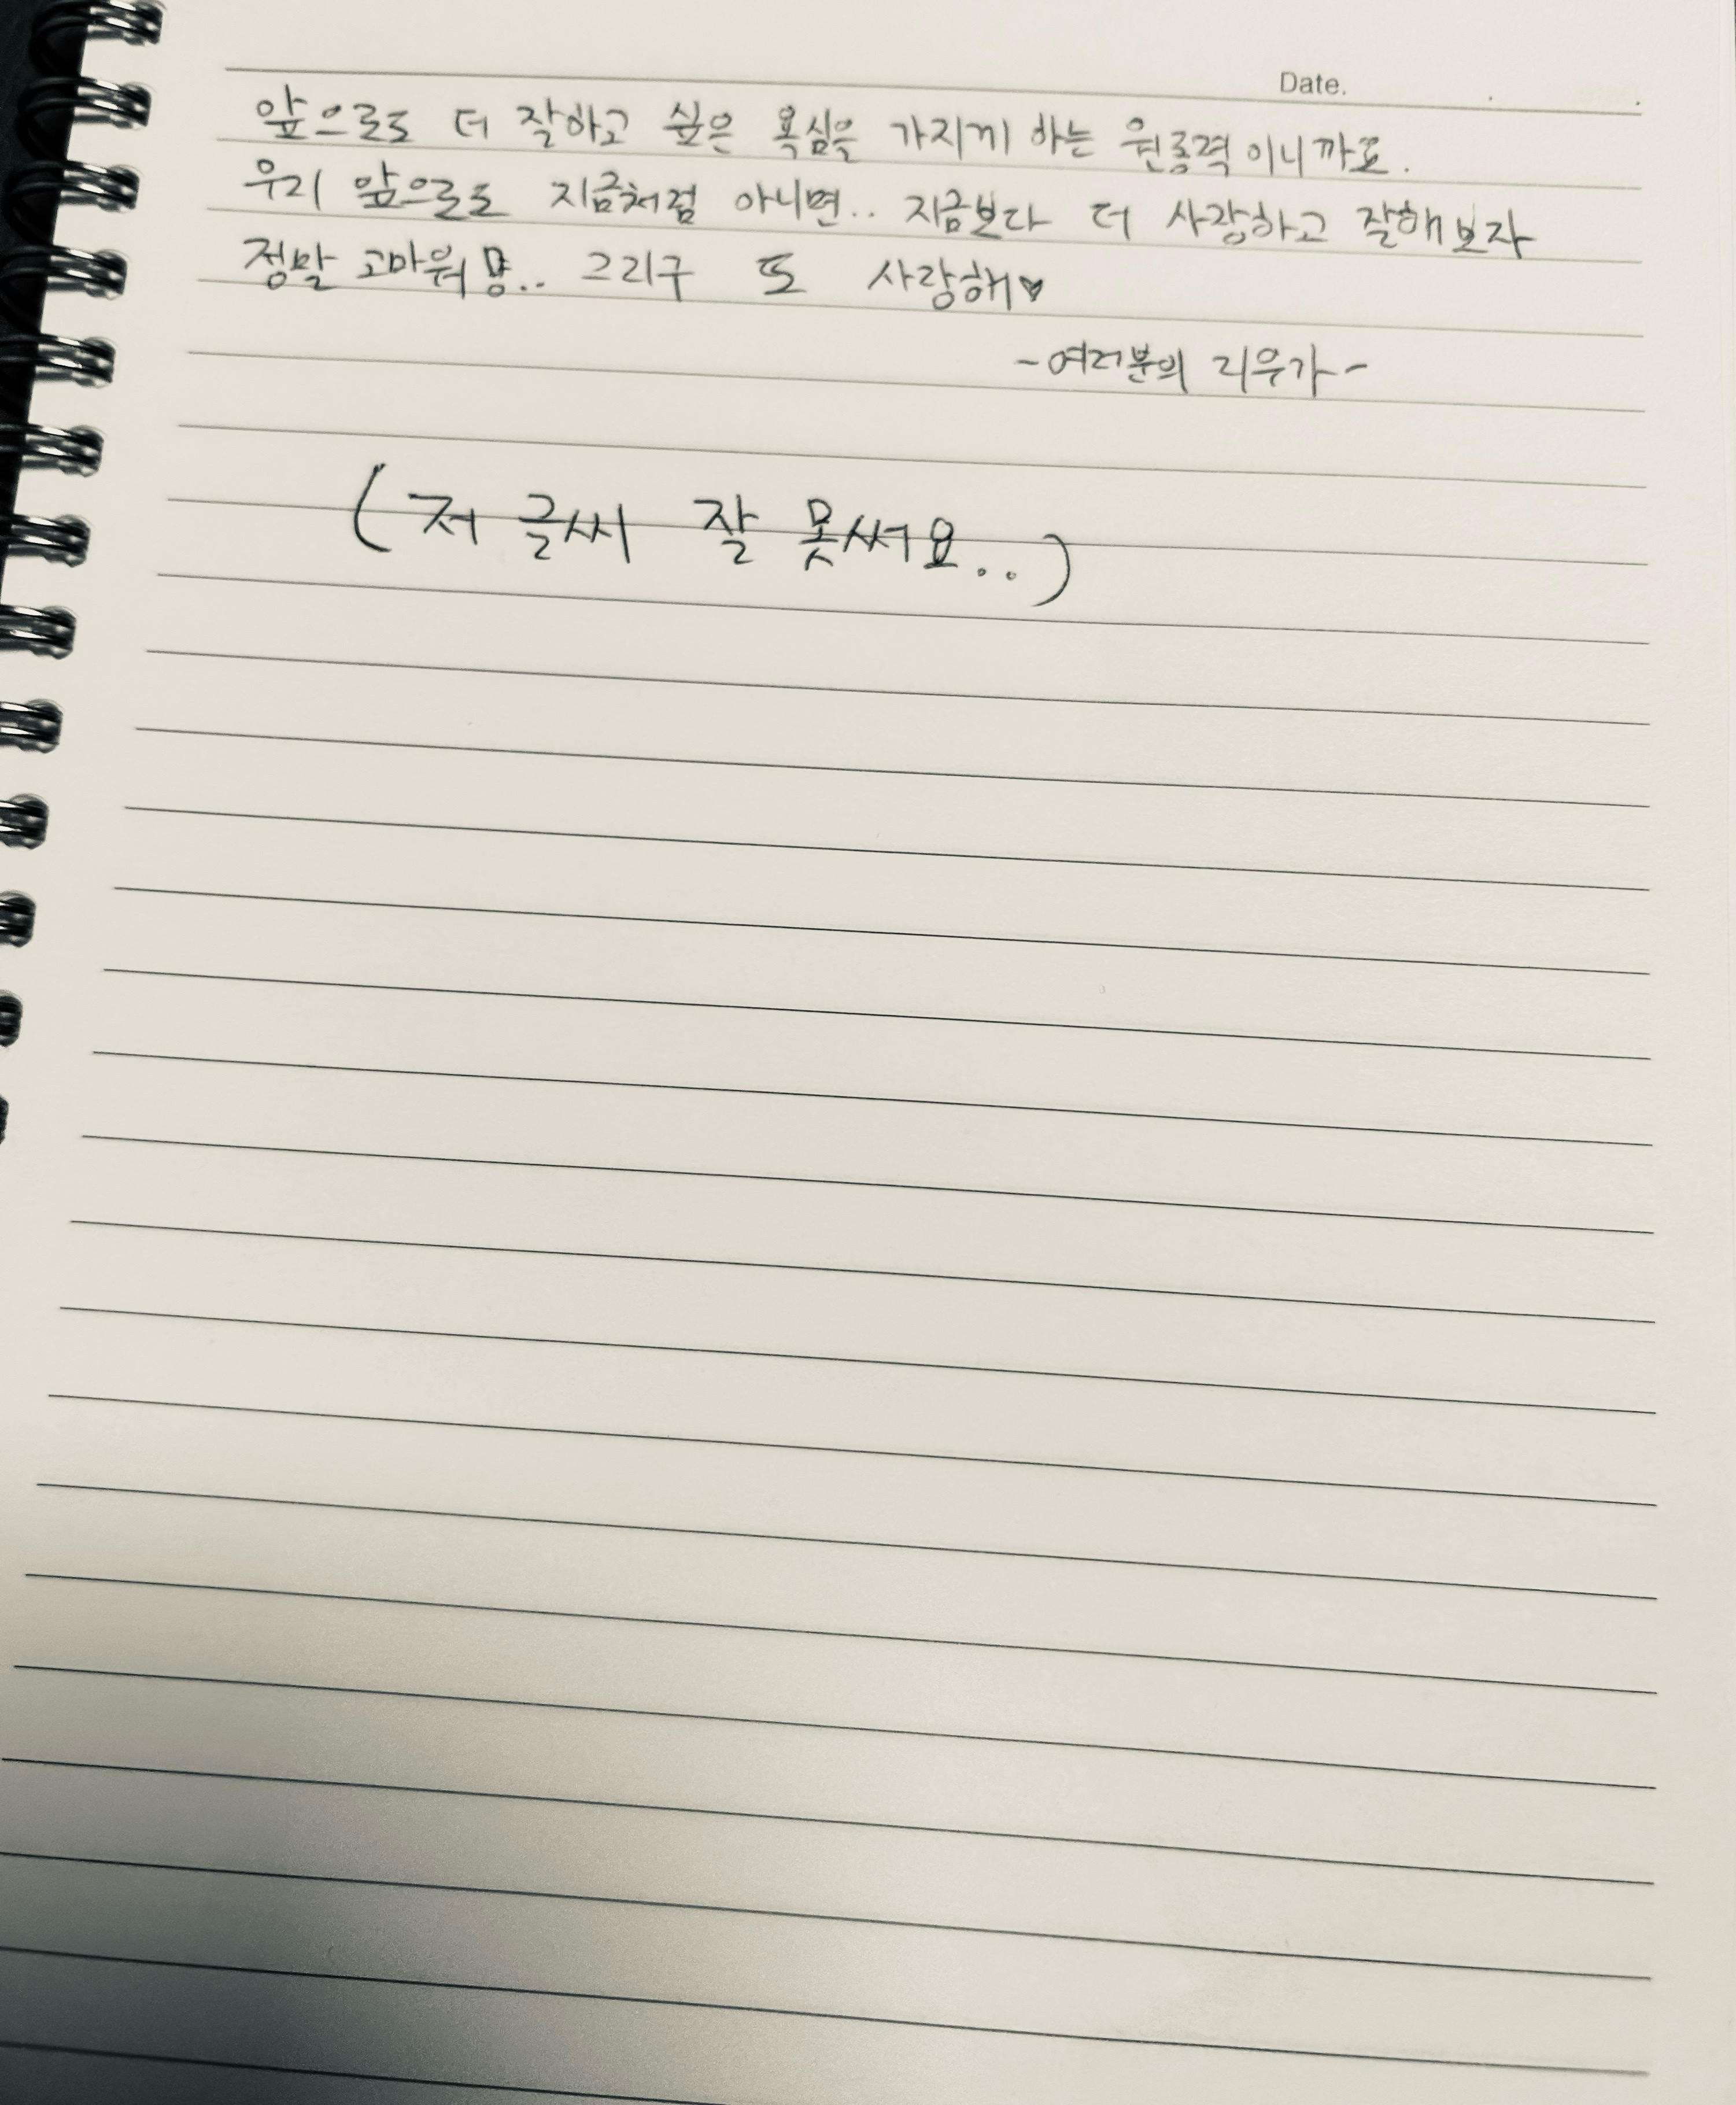 Date. . .
앞으로도 더 잘하고 싶은 욕심을 가지게 하는 원동력이니까요.
우리 앞으로도 지금처럼 아니면.. 지금보다 더 사랑하고 잘해보자
정말 고마워 .. 그리구 또 사랑해♥
-여러분의 리우가-
(저 글씨 잘 못써요..)